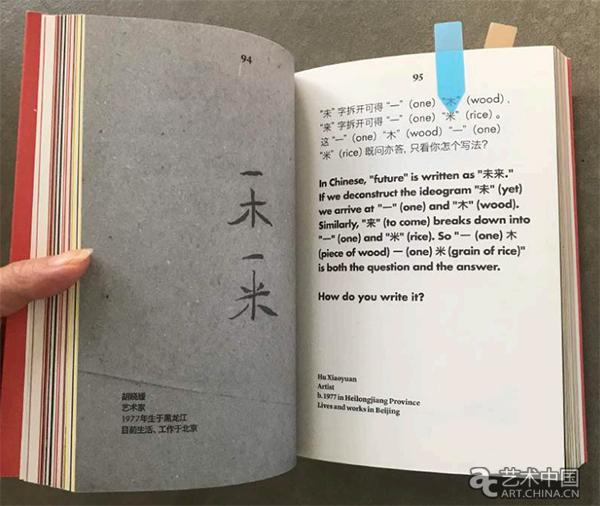 94
一
木
一
米
胡晓媛
艺术家
1977年生于黑龙江
目前生活、工作于北京
95
“未”字拆开可得“一”(one)“木”(wood)、
“来”字拆开可得“一”(one)“米”(rice)。
这“一”(one)“木”(wood)“一”(one)
“米”(rice)既问亦答，只看你怎个写法？
In Chinese, "future" is written as "未来."
If we deconstruct the ideogram "未" (yet)
we arrive at "一" (one) and "木" (wood).
Similarly, "来" (to come) breaks down into
"一" (one) and "米" (rice). So "一 (one) 木
(piece of wood) 一 (one) 米 (grain of rice)"
is both the question and the answer.
How do you write it?
Hu Xiaoyuan
Artist
b. 1977 in Heilongjiang Province
Lives and works in Beijing
艺术中国
ART.CHINA.CN